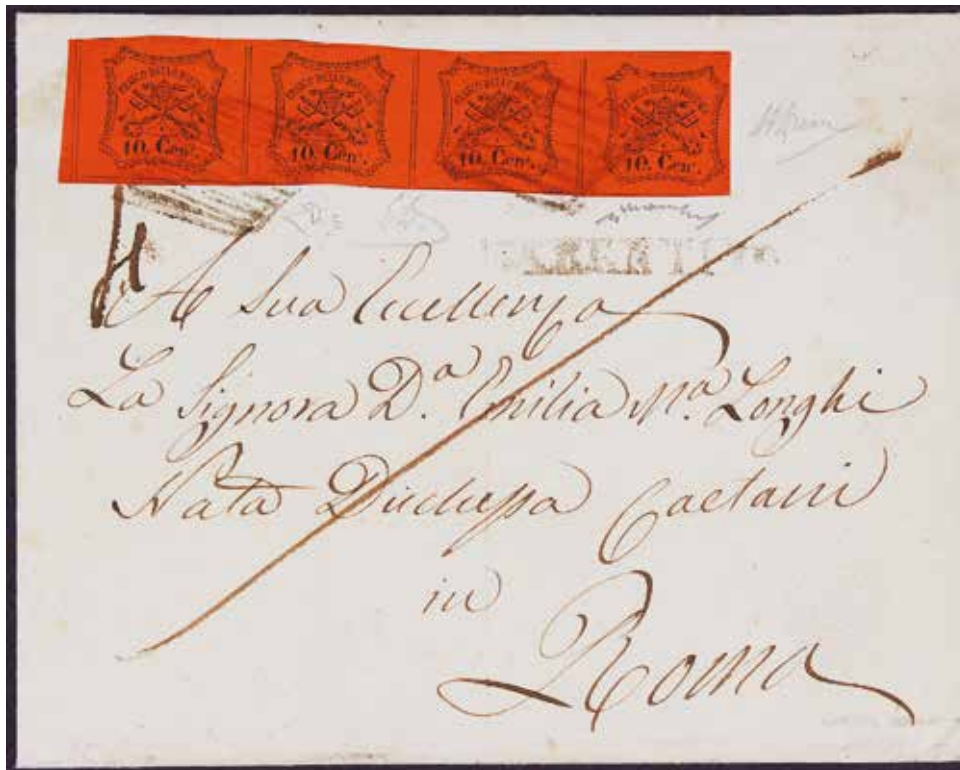 FRANCO BOLLO POSTALE FRANCO BOLLO POSTALE FRANCO BOLLO POSTALE FRANCO BOLLO POSTALE
10. Cent. 10. Cent. 10. Cent. 10. Cent.
4
A Sua Eccellenza
La Signora D.ª Emilia Mª. Longhi
Nata Duchessa Caetani
in
Roma